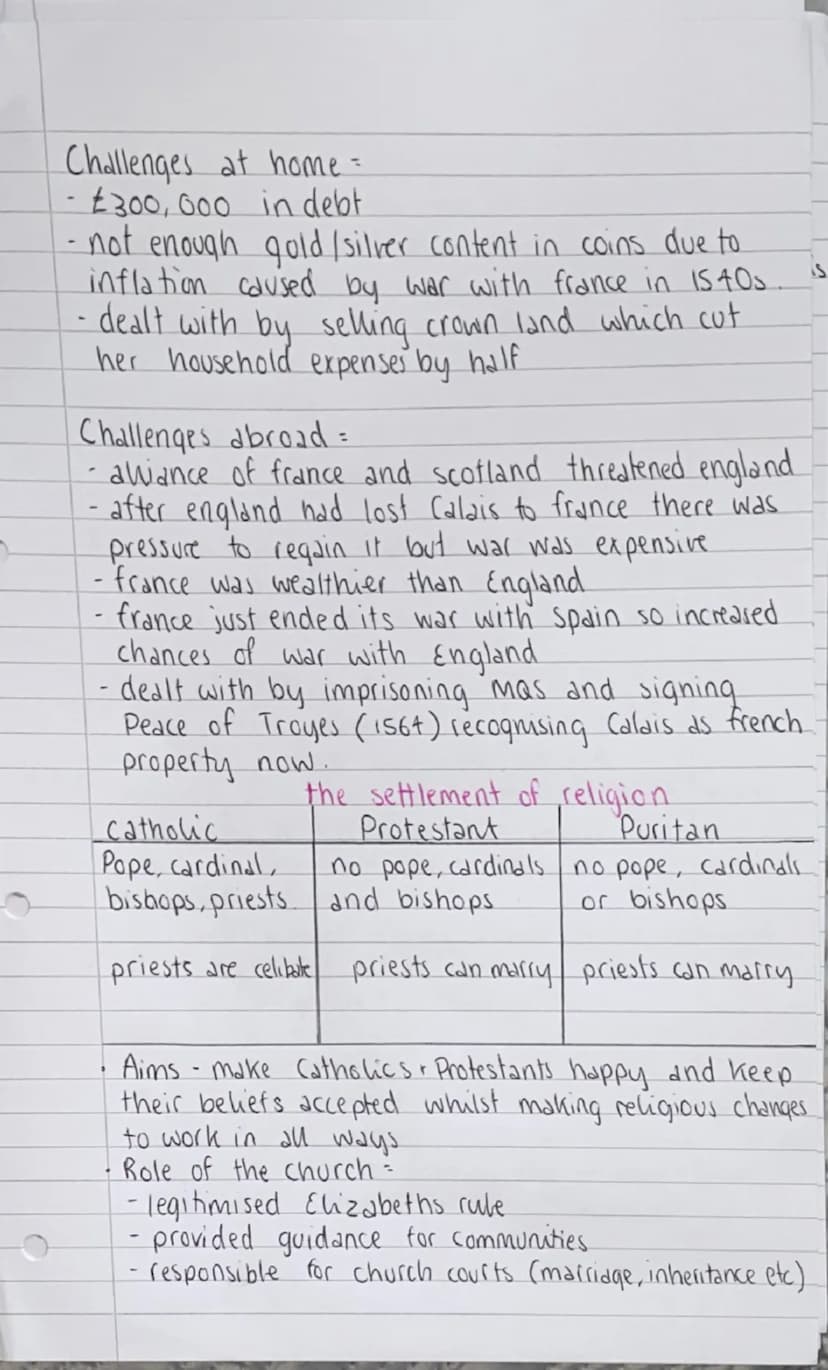 Challenges at home =
- £300,000 in debt
- not enough gold/silver content in coins due to
inflation caused by war with france in 1540s.
is
- dealt with by selling crown land which cut
her household expenses by half
Challenges abroad =
- alliance of france and scotland threatened england
- after england had lost Calais to france there was
pressure to regain it but war was expensive
- france was wealthier than England
- france just ended its war with Spain so increased
chances of war with England
- dealt with by imprisoning MQS and signing
Peace of Troyes (1564) recognising Calais as french
property now.
the settlement of religion
catholic Protestant Puritan
Pope, cardinal, no pope, cardinals no pope, cardinals
bishops, priests and bishops or bishops
priests are celibate priests can marry priests can marry
· Aims - make Catholics + Protestants happy and keep
their beliefs accepted whilst making religious changes
to work in all ways
· Role of the church =
- legitimised Elizabeths rule
- provided guidance for communities
- responsible for church courts (marridge, inheritance etc)